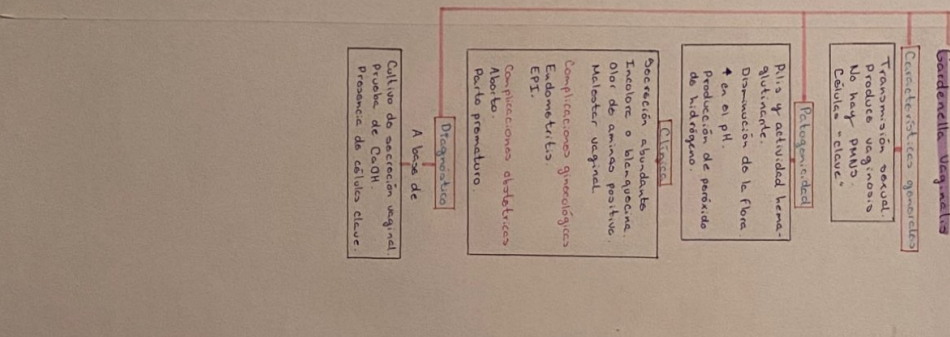 Gardenella vaginalis
Características generales
Transmisión sexual.
Produce vaginosis
No hay PMNs
Células "clave"
Patogenicidad
Pilis y actividad hema-
glutinante.
Disminución de la flora
↑ en el pH.
Producción de peróxido
de hidrógeno.
Clínica
Secreción abundante
Incolora o blanquecina.
Olor de aminas positiva.
Malestar vaginal
Complicaciones ginecológicas
Endometritis.
EPI.
Complicaciones obstetricas
Aborto.
Parto prematuro.
Diagnóstico
A base de
Cultivo de secreción vaginal.
Prueba de CaOH.
Presencia de células clave.